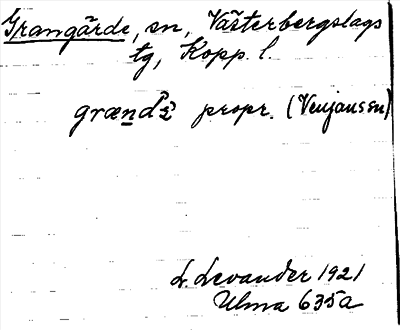 Grangärde, sn, Västerbergslags
tg, Kopp. l.
propr. (Venjanssn)
L. Levander 1921
Ulma 635a